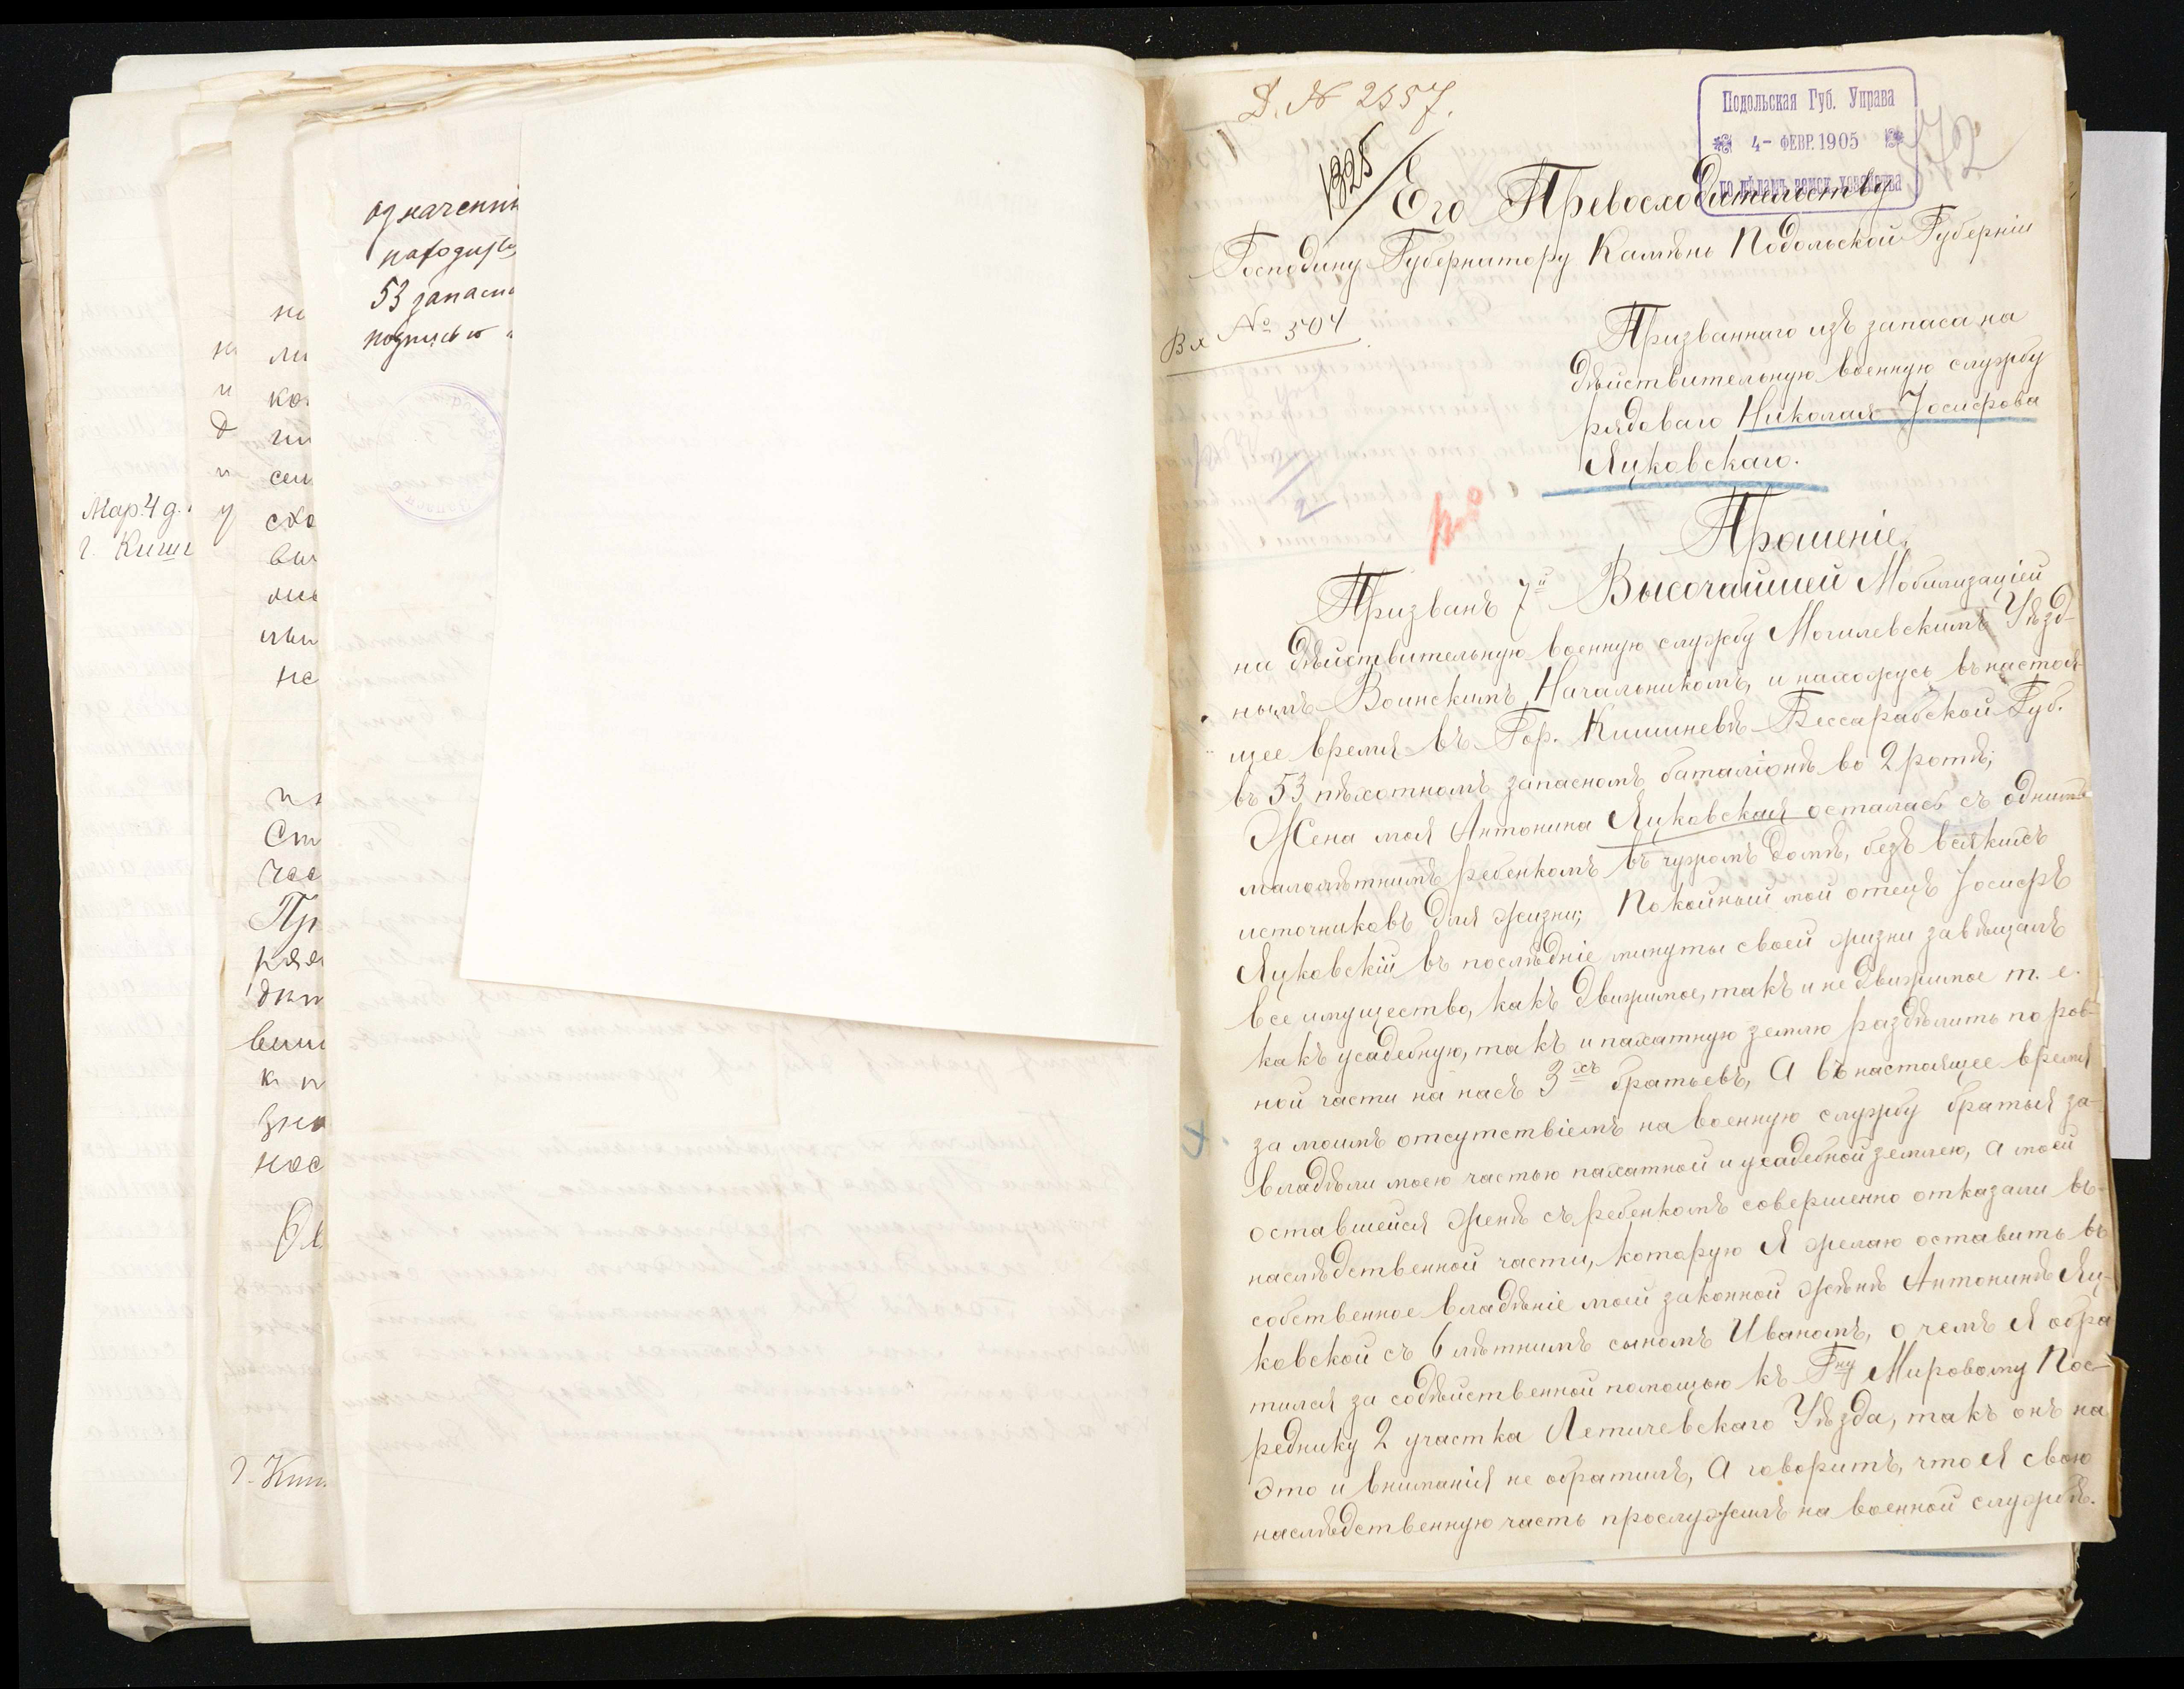 Мар. 4 д.
г. Киши
г. Киши
означенны
находитс
53 запасно
подписью и
Д. № 2557.
Подольская Губ. Управа
4- ФЕВР. 1905
по дѣламъ земск. хозяйства
1325
Его Превосходительству
Господину Губернатору Камѣнь Подольской Губерніи
Вх № 504
Призваннаго изъ запаса на
дѣйствительную военную службу
рядоваго Николая Іосифова
Яцковскаго.
Прошеніе.
Призванъ 7й Высочайшей Мобилизаціей
на дѣйствительную военную службу Могилевскимъ Уѣзд-
нымъ Воинскимъ Начальникомъ, и нахожусь въ настоя-
щее время въ Гор. Кишиневѣ Бессарабской Губ.
въ 53 пѣхотномъ запасномъ баталіонѣ во 2 ротѣ;
Жена моя Антонина Яцковская осталась съ однимъ
малолѣтнимъ ребенкомъ въ чужомъ домѣ, безъ всякихъ
источниковъ для жизни; Покойный мой отецъ Іосифъ
Яцковскій въ послѣдніе минуты своей жизни завѣщалъ
все имущество, какъ движимое, такъ и не движимое т. е.
какъ усадебную, такъ и пахатную землю раздѣлить по ров-
ной части на насъ 3хъ братьевъ, А въ настоящее время
за моимъ отсутствіемъ на военную службу братья за-
владѣли моею частью пахатной и усадебной землею, а моей
оставшейся женѣ съ ребенкомъ совершенно отказали въ
наслѣдственной части, которую Я желаю оставить въ
собственное владѣніе моей законной жѣнѣ Антонинѣ Яц-
ковской съ 6 лѣтнимъ сыномъ Иваномъ, о чемъ Я обра
тился за содѣйственной помощью къ Гну Мировому Пос-
реднику 2 участка Летичевскаго Уѣзда, такъ онъ на
это и вниманія не обратилъ, А говоритъ, что Я свою
наслѣдственную часть прослужилъ на военной службѣ.